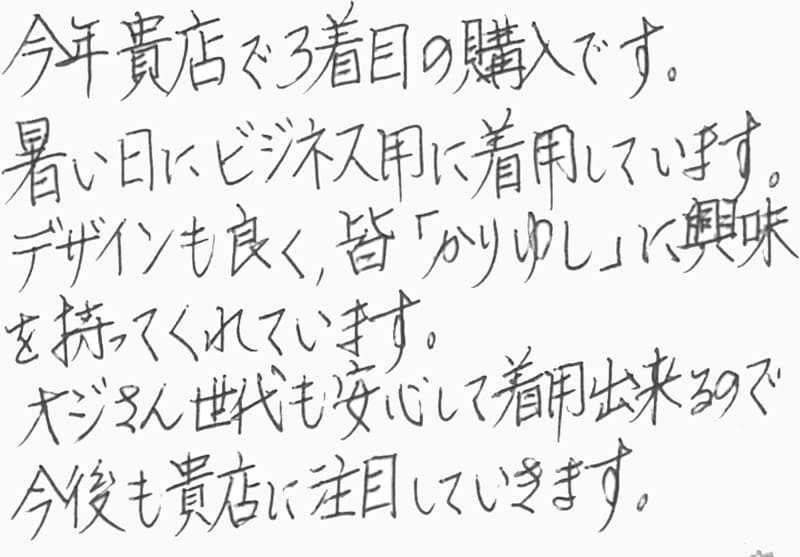 今年貴店で3着目の購入です。
暑い日にビジネス用に着用しています。
デザインも良く,皆「かりゆし」に興味
を持ってくれています。
オジさん世代も安心して着用出来るので
今後も貴店に注目していきます。